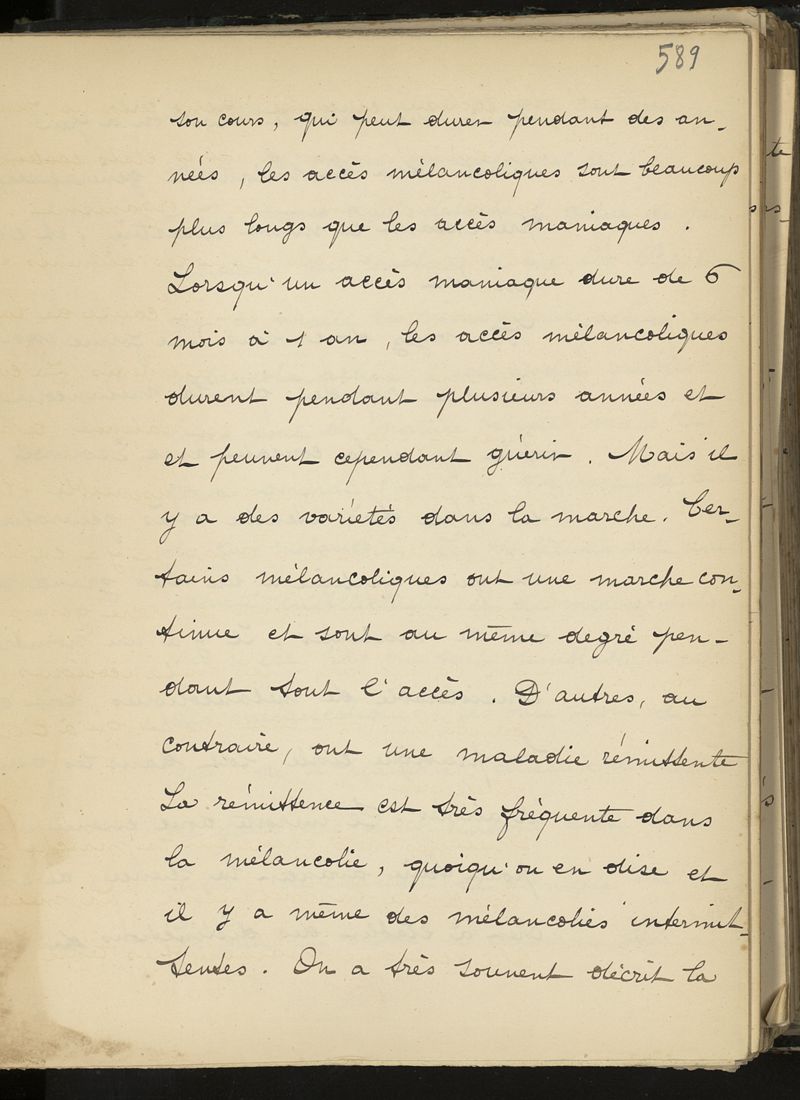 589
son cours, qui peut durer pendant des an-
nées, les accès mélancoliques sont beaucoup
plus longs que les accès maniaques.
Lorsqu'un accès maniaque dure de 6
mois à 1 an, les accès mélancoliques
durent pendant plusieurs années et
et peuvent cependant guérir. Mais il
y a des variétés dans la marche. Cer-
tains mélancoliques ont une marche con-
tinue et sont au même degré pen-
dant tout l'accès. D'autres, au
contraire, ont une maladie rémittente
La rémittence est très fréquente dans
la mélancolie, quoiqu'on en dise et
il y a même des mélancolies intermit-
tentes. On a très souvent décrit la